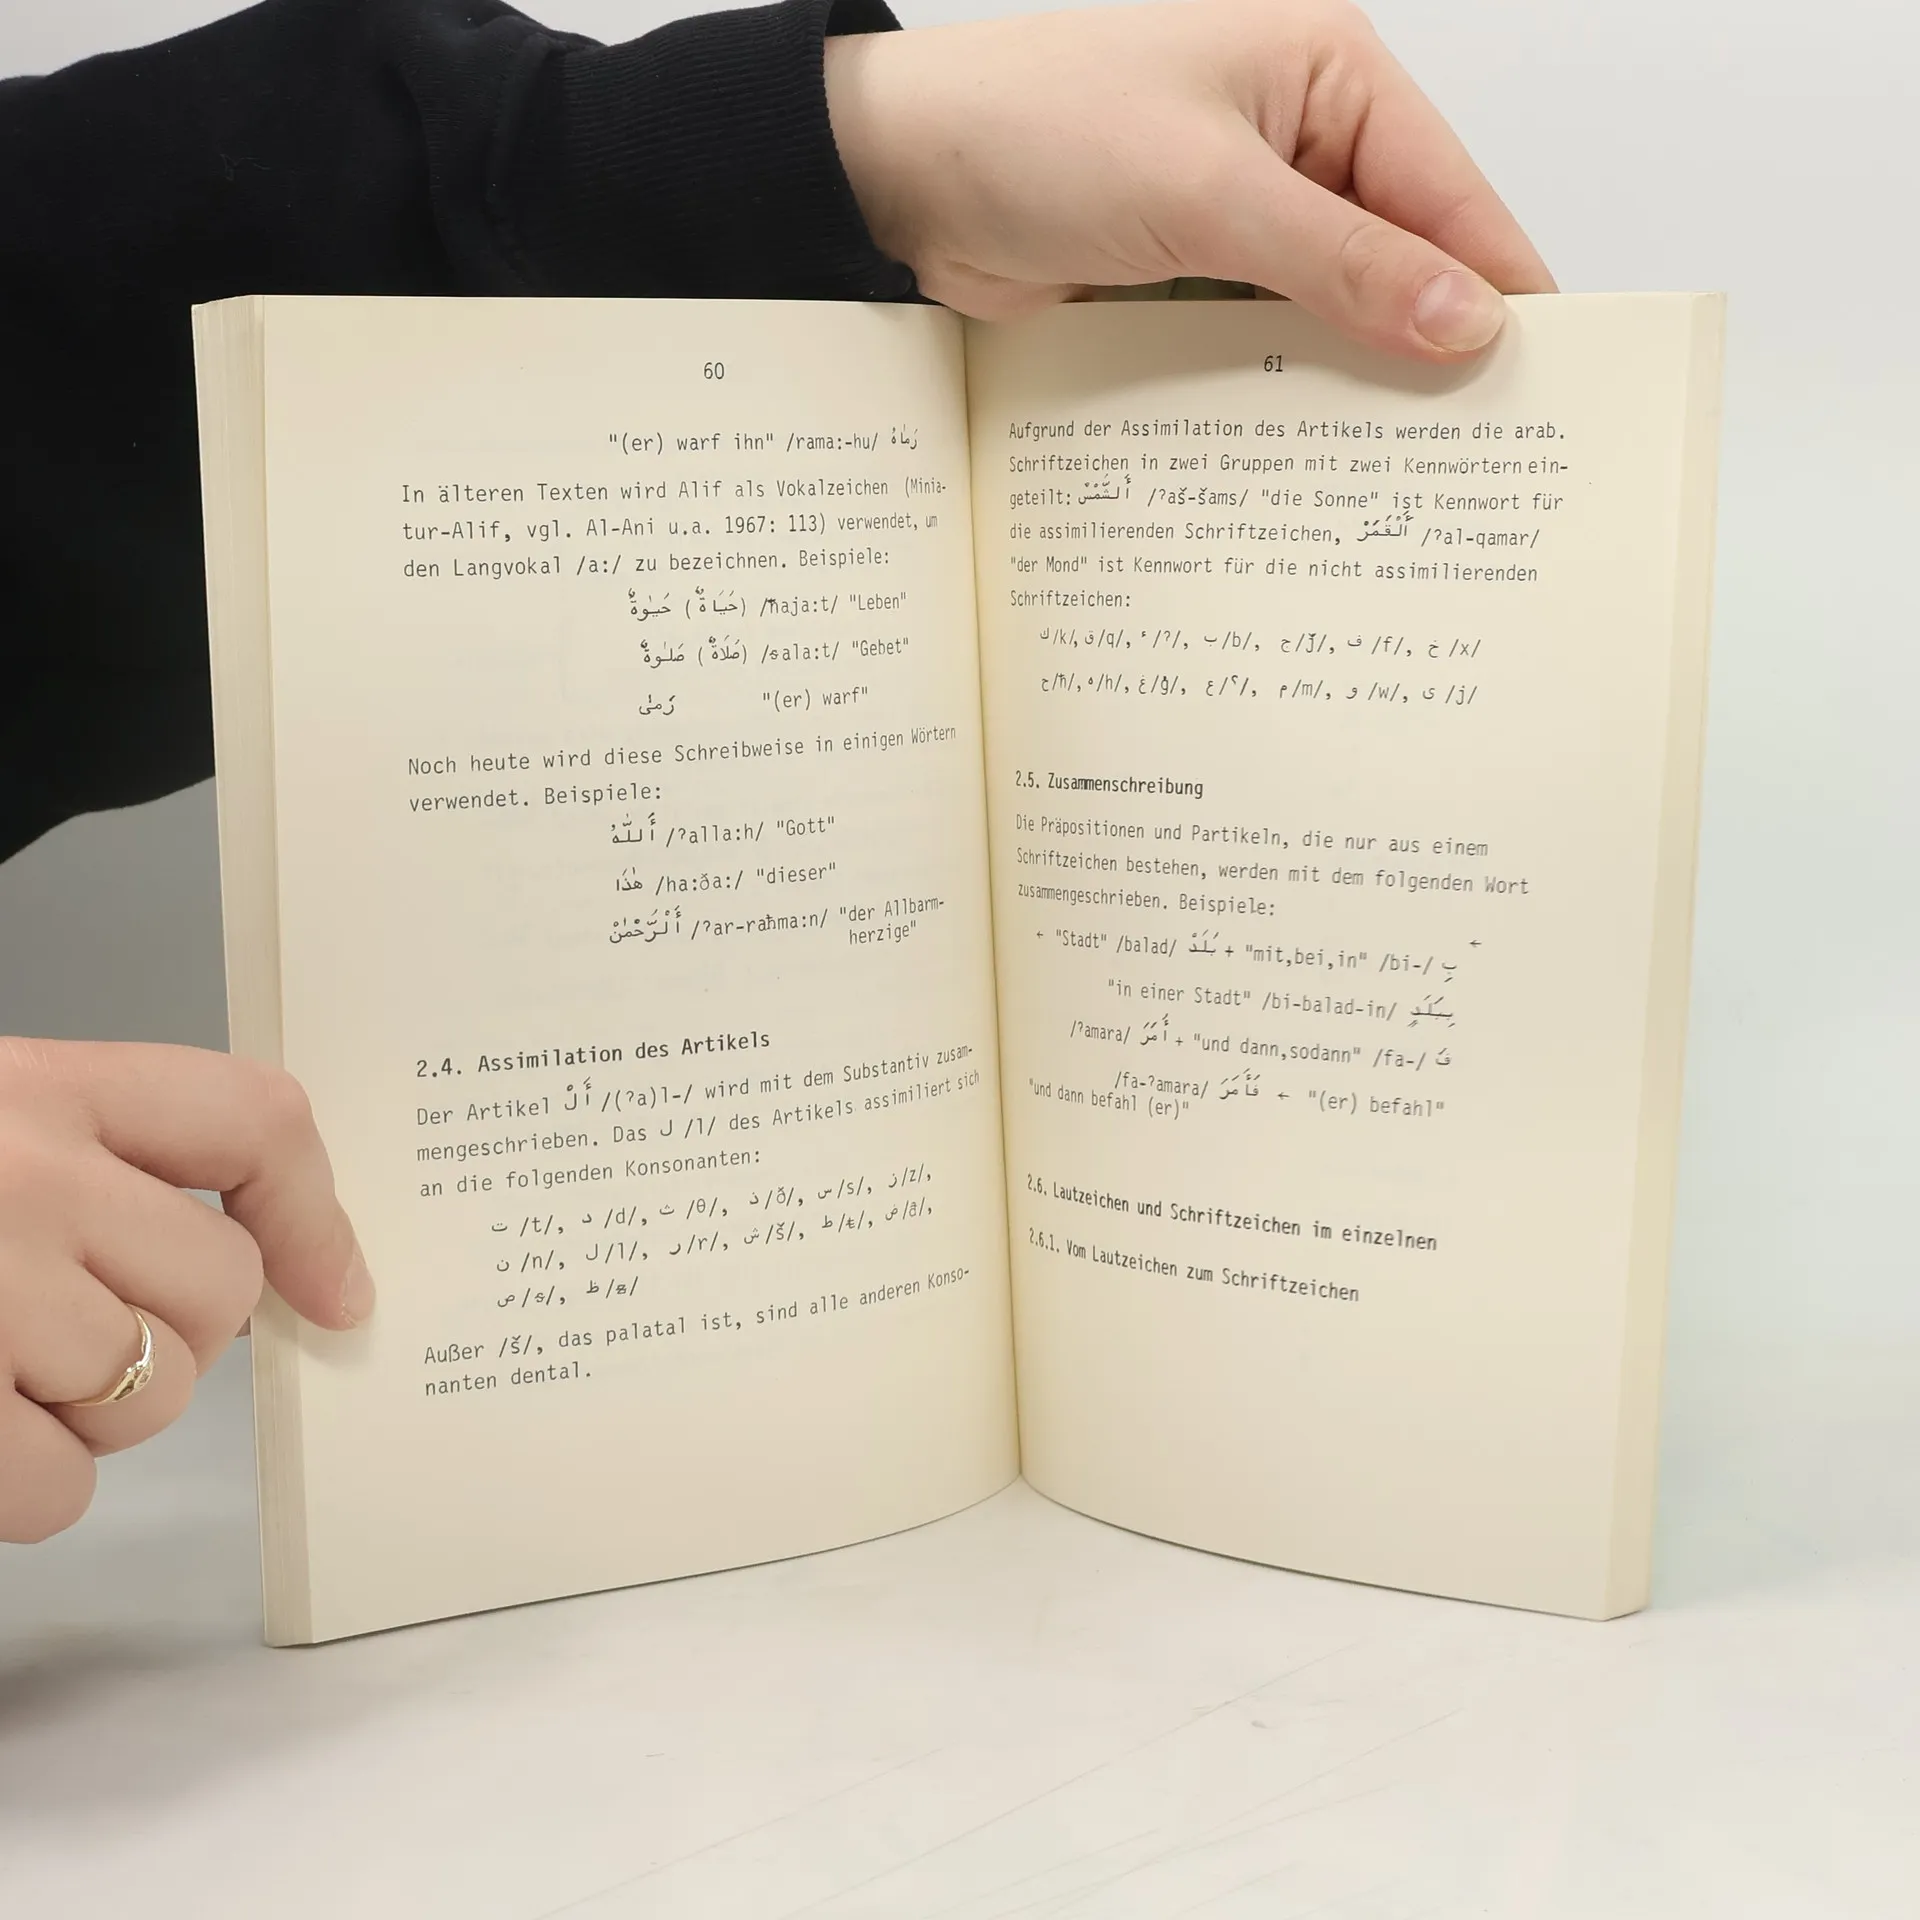 60
"(er) warf ihn" /rama:-hu/ رَمَاهُ
In älteren Texten wird Alif als Vokalzeichen (Minia-
tur-Alif, vgl. Al-Ani u.a. 1967: 113) verwendet, um
den Langvokal /a:/ zu bezeichnen. Beispiele:
حَيٰوةٌ (حَيَاةٌ) /ħaja:t/ "Leben"
صَلٰوةٌ (صَلَاةٌ) /ꞩala:t/ "Gebet"
رَمٰى "(er) warf"
Noch heute wird diese Schreibweise in einigen Wörtern
verwendet. Beispiele:
أَللّٰهُ /ʔalla:h/ "Gott"
هٰذَا /ha:ða:/ "dieser"
أَلْرَّحْمٰنْ /ʔar-raħma:n/ "der Allbarm-
herzige"
2.4. Assimilation des Artikels
Der Artikel أَلْ /(ʔa)l-/ wird mit dem Substantiv zusam-
mengeschrieben. Das ل /l/ des Artikels assimiliert sich
an die folgenden Konsonanten:
ت /t/, د /d/, ث /θ/, ذ /ð/, س /s/, ز /z/,
ن /n/, ل /l/, ر /r/, ش /š/, ط /ŧ/, ض /đ/,
ص /ꞩ/, ظ /ƶ/
Außer /š/, das palatal ist, sind alle anderen Konso-
nanten dental.
61
Aufgrund der Assimilation des Artikels werden die arab.
Schriftzeichen in zwei Gruppen mit zwei Kennwörtern ein-
geteilt: أَلشَّمْسْ /ʔaš-šams/ "die Sonne" ist Kennwort für
die assimilierenden Schriftzeichen, أَلْقَمَرْ /ʔal-qamar/
"der Mond" ist Kennwort für die nicht assimilierenden
Schriftzeichen:
ك /k/, ق /q/, ء /ʔ/, ب /b/, ج /ǰ/, ف /f/, خ /x/
ح /ħ/, ه /h/, غ /ğ/, ع /ʕ/, م /m/, و /w/, ى /j/
2.5. Zusammenschreibung
Die Präpositionen und Partikeln, die nur aus einem
Schriftzeichen bestehen, werden mit dem folgenden Wort
zusammengeschrieben. Beispiele:
← "Stadt" /balad/ بَلَدْ + "mit,bei,in" /bi-/ بِ ←
"in einer Stadt" /bi-balad-in/ بِبَلَدٍ
/ʔamara/ أَمَرَ + "und dann,sodann" /fa-/ فَ
/fa-ʔamara/ فَأَمَرَ ← "(er) befahl"
"und dann befahl (er)"
2.6. Lautzeichen und Schriftzeichen im einzelnen
2.6.1. Vom Lautzeichen zum Schriftzeichen